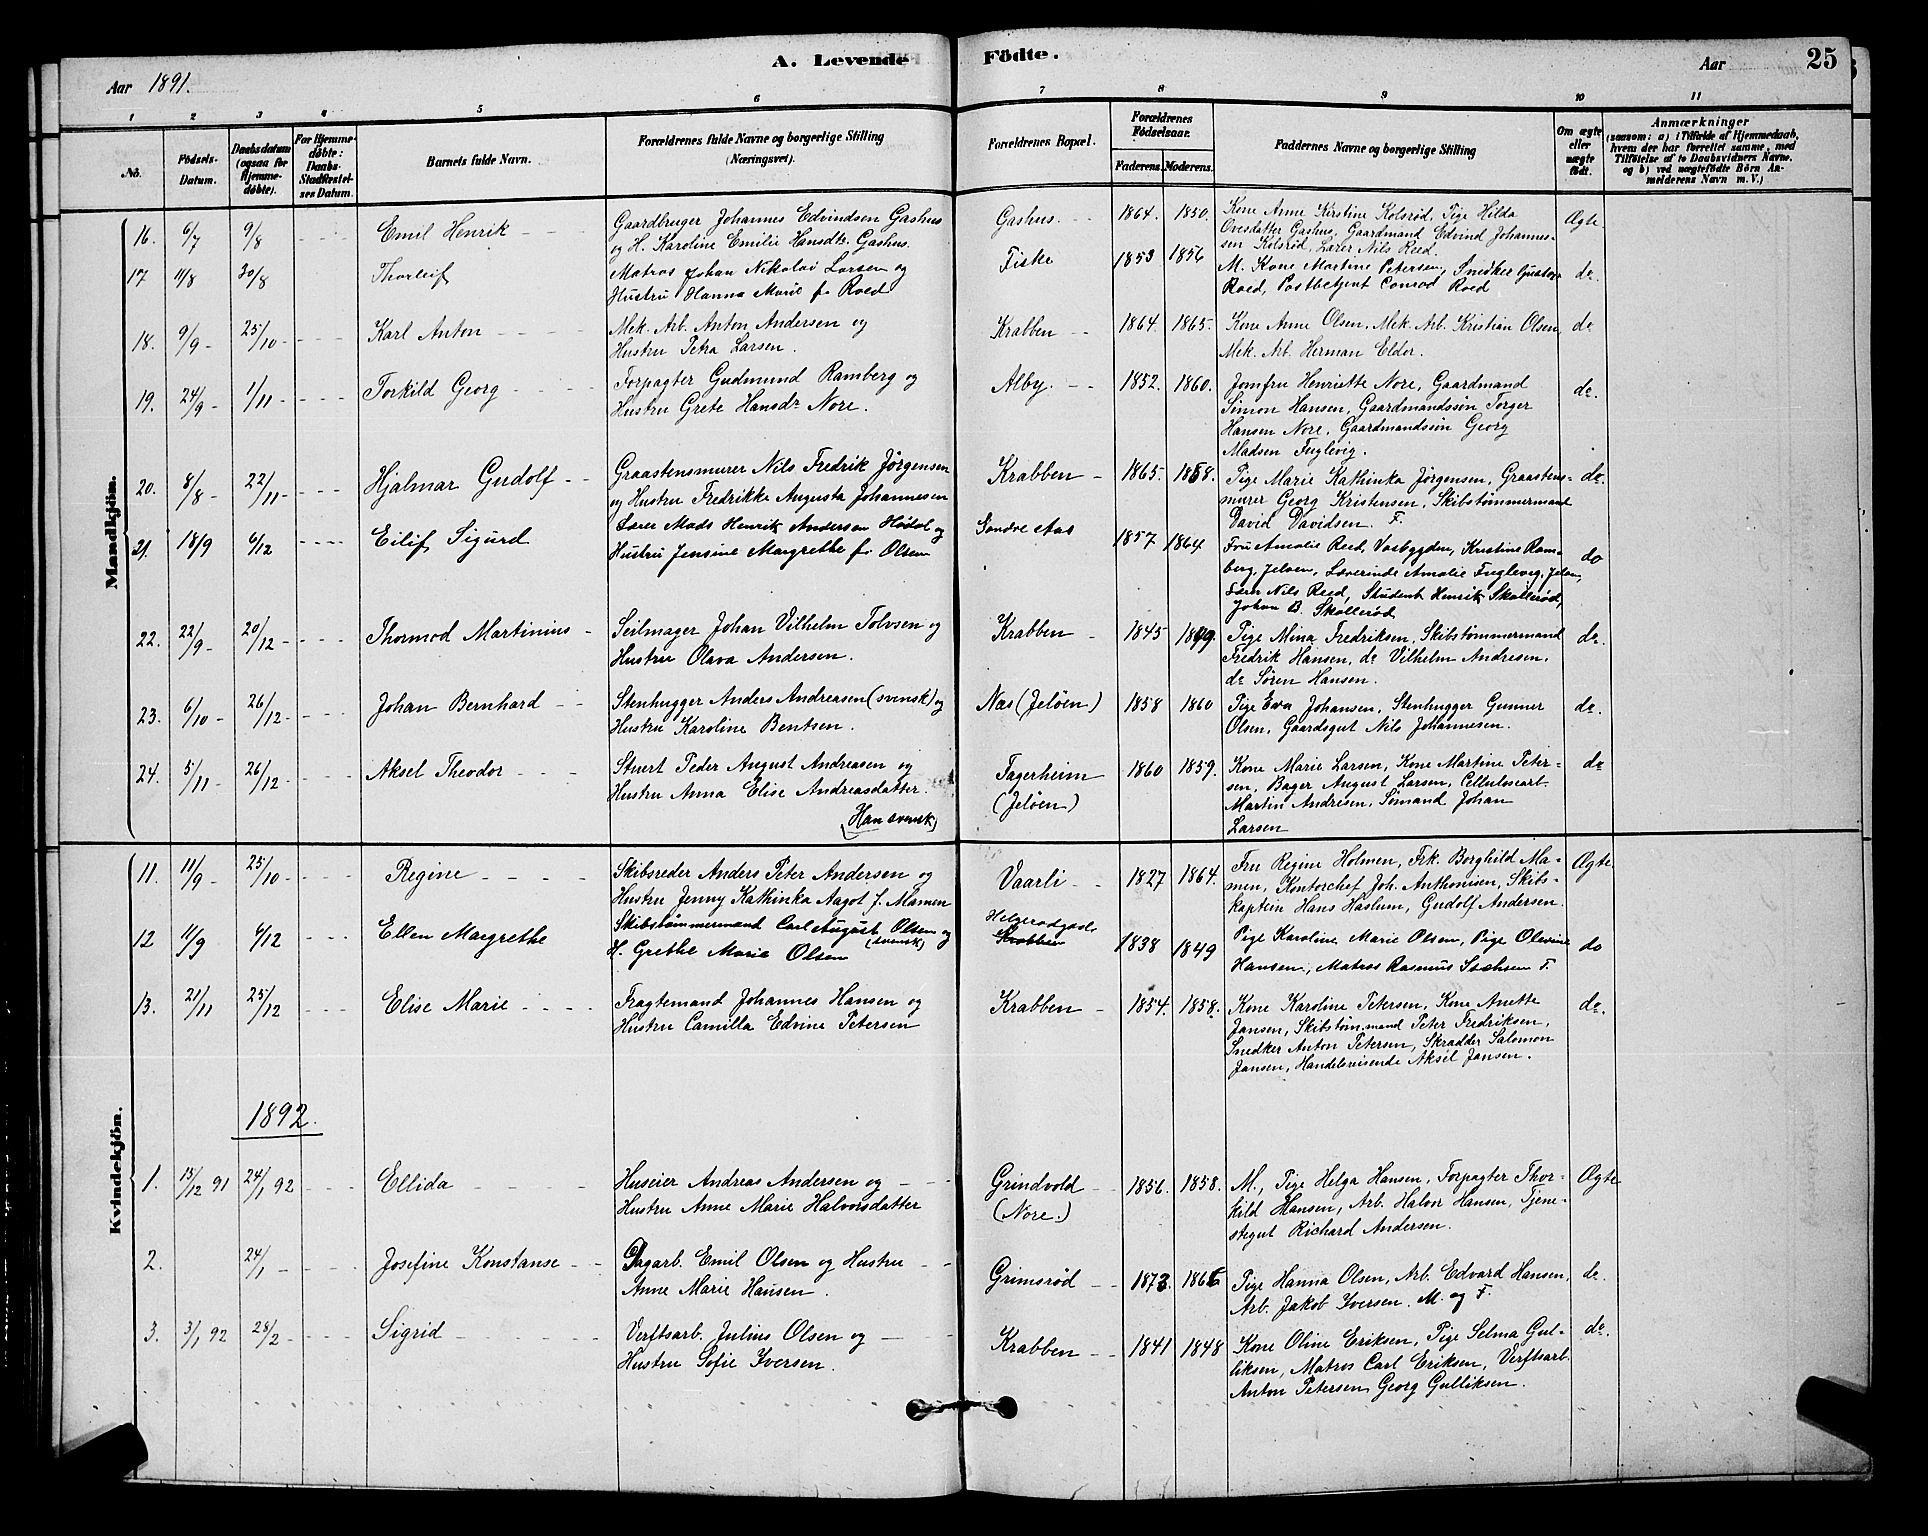 A. Levende Födte.
Aar 1891.
Aar
25
1 2 3 4 5 6 7 8 9 10 11
No.
Födsels-Datum.
Daabsdatum (ogsaa for Hjemme-döbte).
For Hjemme-döbte: Daabs-Stadfæstel-ses Datum.
Barnets fulde Navn.
Forældrenes fulde Navne og borgerlige Stilling (Næringsvei).
Forældrenes Bopæl.
Forældrenes Födselsaar.
Faderens. Moderens.
Faddernes Navne og borgerlige Stilling
Om ægte eller uægte födt.
Anmærkninger
(saasom: a) i Tilfælde af Hjemmedaab, hvem der har forrettet samme, med Tilföielse af to Daabsvidners Navne, og b) ved uægtefödte Börn Anmelderens Navn m. V.)
Mandkjön.
16. 6/7 9/8 Emil Henrik Gaardbruger Johannes Edvindsen Gashus
og H. Karoline Emilie Hansdtr. Gashus.
Gashus. 1864. 1850. Kone Anne Kirstine Kolsrød, Pige Hilda
Ovesdatter Gashus, Gaardmand Edvind Johannes-
sen Kolsrød, Lærer Nils Reed.
Ægte
17 11/8 30/8 Thorleif Matros Johan Nikolai Larsen og
Hustru Hanna Marie f. Roed
Fiske 1853 1856 M. Kone Martine Petersen, Snedker Gustav
Roed, Postbetjent Conrad Roed
do.
18. 9/9 25/10 Karl Anton Mek. Arb. Anton Andersen og
Hustru Petra Larsen.
Krabben 1864. 1865. Kone Anne Olsen, Mek. Arb. Kristian Olsen,
Mek. Arb. Herman Eldor.
do
19. 24/9 1/11 Torkild Georg Forpagter Gudmund Ramberg og
Hustru Grete Hansdr Nore.
Alby. 1852. 1860. Jomfru Henriette Nore, Gaardmand
Simon Hansen, Gaardmandssön Torger
Hansen Nore, Gaardmandssön Georg
Madsen Fuglevig.
do.
20. 8/8 22/11 Hjalmar Gudolf Graastensmurer Nils Fredrik Jörgensen
og Hustru Fredrikke Augusta Johannesen
Krabben 1865. 1868. Pige Marie Kathinka Jørgensen, Graastens-
murer Georg Kristensen, Skibstømmermand
David Davidsen. F.
do.
21. 18/9 6/12 Eilif Sigurd Lærer Mads Henrik Andersen Hödal og
Hustru Jensine Margrethe f. Olsen
Søndre Aas 1857 1864 Fru Amalie Reed, Vasbygden, Kristine Ram-
berg, Jeløen, Lærerinde Amalie Fuglevig, Jeløn,
Lærer Nils Reed, Student Henrik Skollerød,
Johan B. Skollerød
do
22. 22/9 20/12 Thormod Martinius Seilmager Johan Vilhelm Tolvsen og
Hustru Olava Andersen.
Krabben 1845 1849. Pige Mina Fredriksen, Skibstömmermand
Fredrik Hansen, do Vilhelm Andresen,
do Søren Hansen.
do.
23. 6/10 26/12 Johan Bernhard Stenhugger Anders Andreasen (svensk) og
Hustru Karoline Bentsen.
Nas (Jelöen) 1858 1860 Pige Eva Johansen, Stenhugger Gunner
Olsen, Gaardsgut Nils Johannesen.
do.
24. 5/11 26/12 Aksel Theodor Stuert Peder August Andreasen og
Hustru Anna Elise Andreasdatter.
(Han svensk)
Fagerheim
(Jelöen)
1860 1859. Kone Marie Larsen, Kone Martine Peter-
sen, Bager August Larsen, Cellulosearb.
Martin Andresen, Sømand Johan
Larsen
do
Kvindekjön.
11. 11/9 25/10 Regine Skibsreder Anders Peter Andersen og
Hustru Jenny Kathinka Aagot f. Mamen
Vaarli 1827 1864. Fru Regine Holmen, Frk. Borghild Ma-
men, Kontorchef Joh. Anthonisen, Skibs-
kaptein Hans Haslum, Gudolf Andersen.
Ægte
12 11/9 6/12 Ellen Margrethe Skibstømmermand Carl August Olsen og
(svensk)
H. Grethe Marie Olsen
Krabben
1838 1849 Pige Karoline Marie Olsen, Pige Olevine
Hansen, Matros Rasmus F.
do
13. 21/11 25/12 Elise Marie Fragtemand Johannes Hansen og
Hustru Camilla Edvine Petersen
Krabben 1854. 1858. Kone Karoline Petersen, Kone Anette
Jansen, Skibstøm.mand Peter Fredriksen,
Snedker Anton Petersen, Skrædder Salomon
Jansen, Handelsreisende Aksel Jansen.
do.
1892.
1. 15/12 91 24/1 92 Ellida Huseier Andreas Andersen og
Hustru Anne Marie Halvorsdatter
Grindvold
(Nore.)
1856. 1858. M., Pige Helga Hansen, Forpagter Thor-
kild Hansen, Arb. Halvor Hansen, Tjene-
stegut Richard Andersen.
Ægte
2. 24/1 Josefine Konstanse Dagarb. Emil Olsen og Hustru
Anne Marie Hansen.
Grimsrød 1873. 1866 Pige Hanna Olsen, Arb. Edvard Hansen,
Arb. Jakob Iversen. M. og F.
do.
3. 3/1 92 28/2 Sigrid Verftsarb. Julius Olsen og
Hustru Sofie Iversen.
Krabben 1841 1848 Kone Oline Eriksen, Pige Selma Gul-
liksen, Matros Carl Eriksen, Verftsarb.
Anton Petersen, Georg Gulliksen.
do.